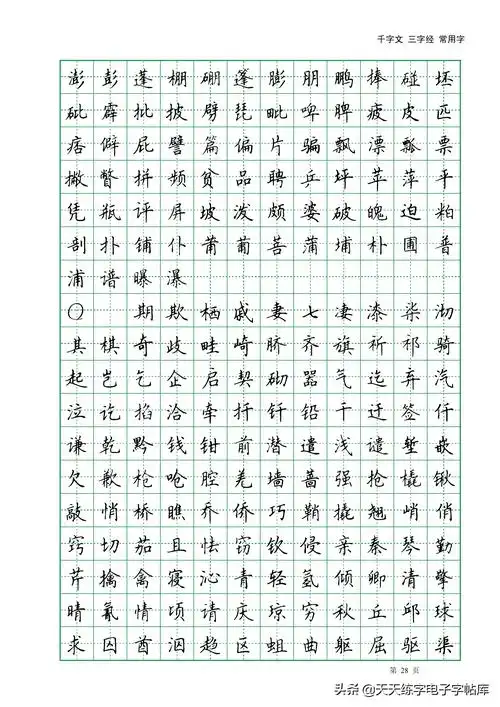 千字文 三字经 常用字
澎彭蓬棚硼篷膨朋鹏捧碰坯
砒霹批披劈琵毗啤脾疲皮匹
痞僻屁譬篇偏片骗飘漂瓢票
撇瞥拼频贫品聘乒坪苹萍平
凭瓶评屏坡泼颇婆破魄迫粕
剖扑铺仆莆葡菩蒲埔朴圃普
浦谱曝瀑
〇 期欺栖戚妻七凄漆柒沏
其棋奇歧畦崎脐齐旗祈祁骑
起岂乞企启契砌器气迄弃汽
泣讫掐洽牵扦钎铅千迁签仟
谦乾黔钱钳前潜遣浅谴堑嵌
欠歉枪呛腔羌墙蔷强抢橇锹
敲悄桥瞧乔侨巧鞘撬翘峭俏
窍切茄且怯窃钦侵亲秦琴勤
芹擒禽寝沁青轻氢倾卿清擎
晴氰情顷请庆琼穷秋丘邱球
求囚酋泅趋区蛆曲躯屈驱渠
第 28 页
头条 @天天练字电子字帖库